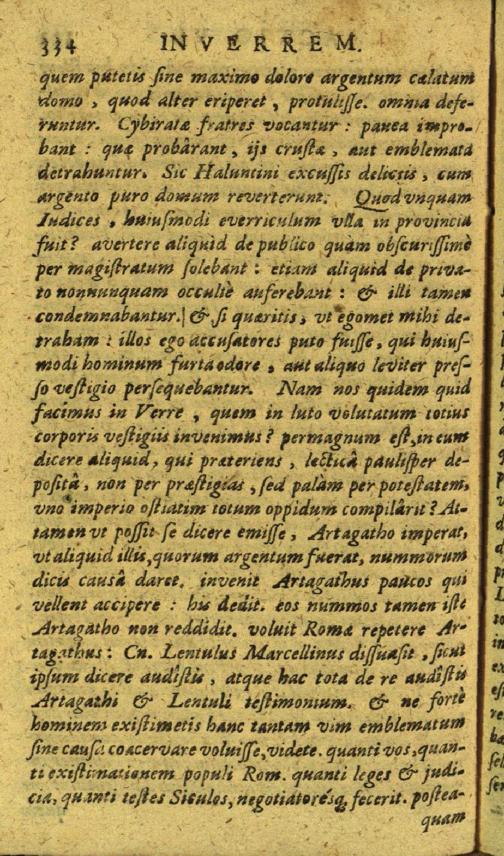 334 IN VERREM.
quem putetis sine maximo dolore argentum cælatum
domo, quod alter eriperet, protulisse. omnia defe-
runtur. Cybiratæ fratres vocantur: pauca impro-
bant: quæ probârant, ijs crustæ, aut emblemata
detrahuntur. Sic Haluntini excussis deliciis, cum
argento puro domum reverterunt. Quod vnquam
Iudices, huiusmodi everriculum vlla in provincia
fuit? avertere aliquid de publico quam obscurissimè
per magistratum solebant: etiam aliquid de priva-
to nonnunquam occultè auferebant: & illi tamen
condemnabantur. & si quæritis, vt egomet mihi de-
traham: illos ego accusatores puto fuisse, qui huius-
modi hominum furta odore, aut aliquo leviter pres-
so vestigio persequebantur. Nam nos quidem quid
facimus in Verre, quem in luto volutatum totius
corporis vestigiis invenimus? permagnum est, in eum
dicere aliquid, qui præteriens, lecticâ paulisper de-
positâ, non per præstigias, sed palàm per potestatem,
vno imperio ostiatim totum oppidum compilârit? At-
tamen vt possit se dicere emisse, Artagatho imperat,
vt aliquid illis, quorum argentum fuerat, nummorum
dicis causâ daret. invenit Artagathus paucos qui
vellent accipere: his dedit. eos nummos tamen iste
Artagatho non reddidit. voluit Romæ repetere Ar-
tagathus: Cn. Lentulus Marcellinus dissuasit, sicut
ipsum dicere audistis, atque hac tota de re audistis
Artagathi & Lentuli testimonium. & ne fortè
hominem existimetis hanc tantam vim emblematum
sine causa coacervare voluisse, videte. quanti vos, quan-
ti existimationem populi Rom. quanti leges & judi-
cia, quanti testes Siculos, negotiatoresq; fecerit. postea-
quam